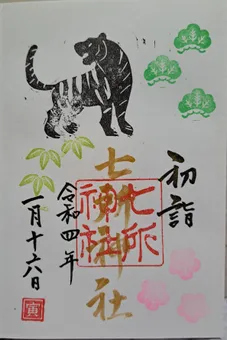 初詣
七所神社
七所神社
令和四年
一月十六日
寅